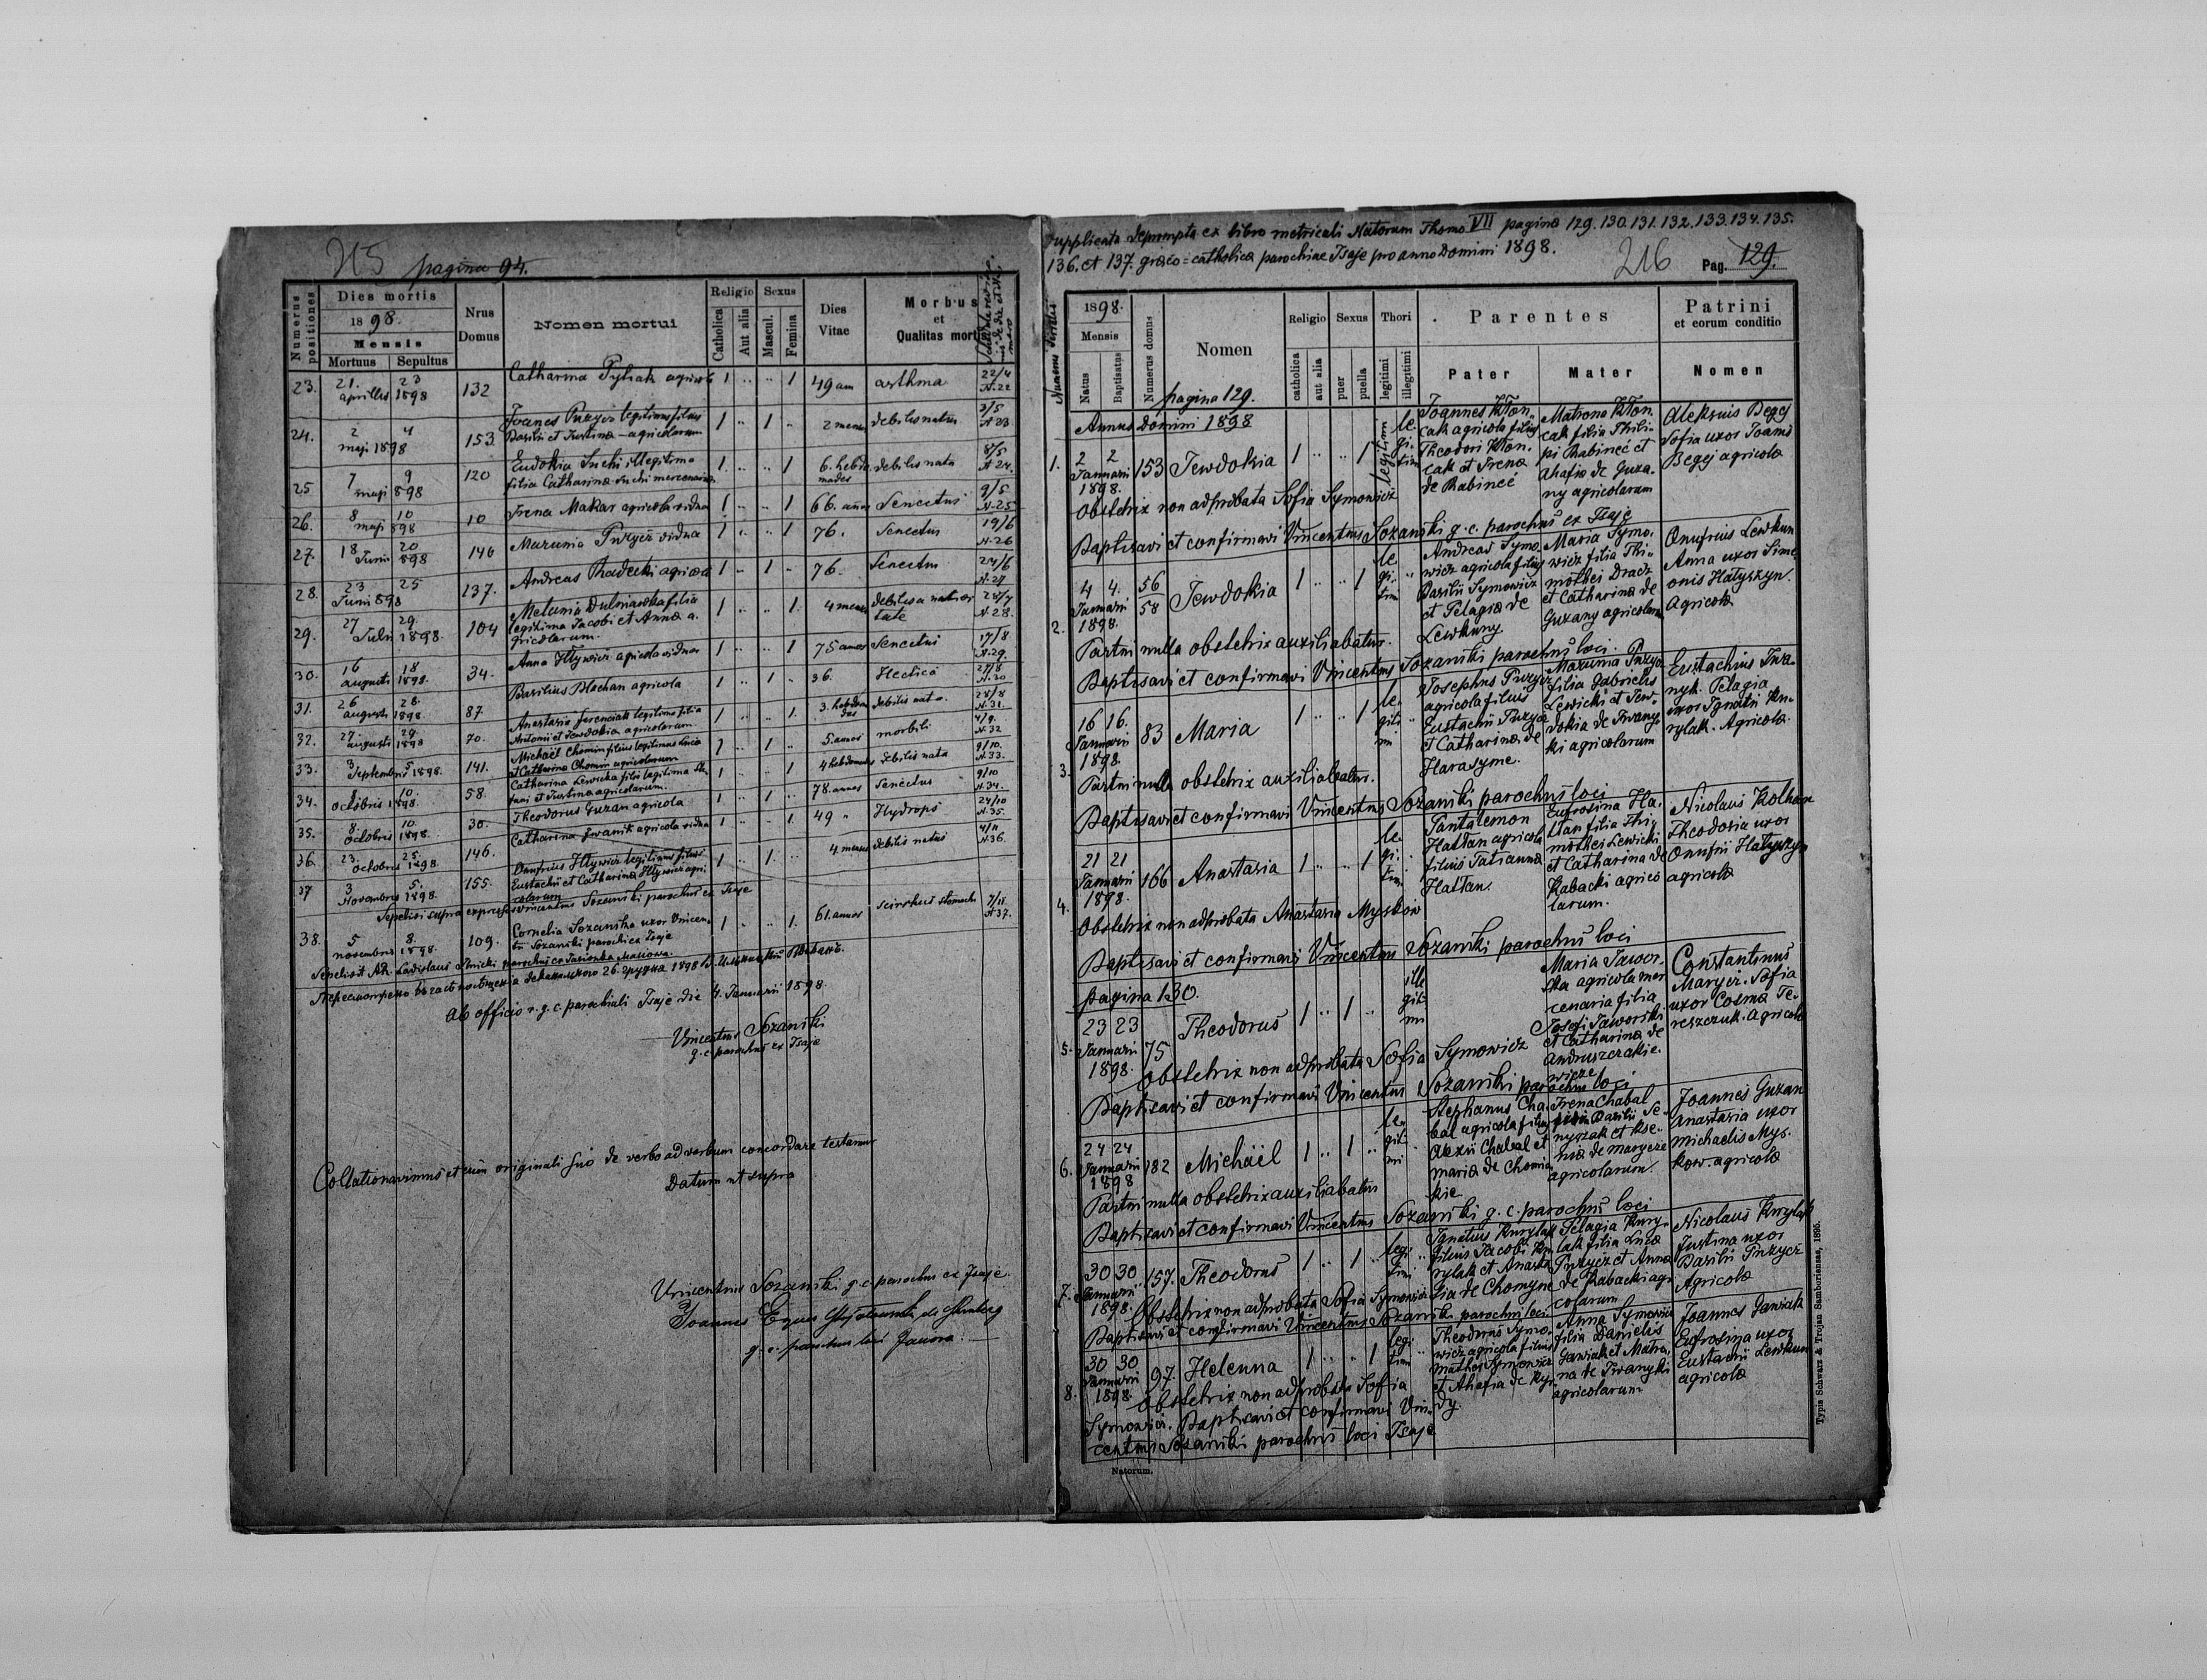 215 pagina 94.
Numerus positiones
Dies mortis
1898.
Mensis
Mortuus Sepultus
Nrus Domus
Nomen mortui
Religio Sexus
Catholica Aut alia Mascul. Femina
Dies Vitae
Morbus
et
Qualitas mortis
23. 21. aprilis 23 1898 132 Catharina agricola 1 .. .. 1 49 ann asthma 22/4 N.22
24. 2 maji 4 1898 153 Joanes Puzycz legitimus filius
Basilii et Justina agricolarum 1 .. 1 .. 2 menses debilis natus 3/5 N 23
25 7 maji 9 898 120 Eudokia Suchi illegitima
filia Catharina Suchi mercenaria 1 .. .. 1 6. hebdo mades debilis nata 8/5 N 24.
26. 8 maji 10 898 10 Irena Makar agricola vidua 1 .. .. 1 66. annos Senectus 9/5 N.25
27. 18 Junii 20 898 146 Marunia Puzycz vidua 1 .. .. 1 76. Senectus 19/6 N.26
28. 23 Junii 25 898 137. Andreas Radecki agricola 1 .. 1 .. 76. Senectus 24/6 N.27
29. 27 Julii 29. 1898. 104 Melania Dulniawka filia
legitima Jacobi et Anna a-
gricolarum. 1 .. .. 1. 4 menses debilis a nativi tate 28/7 N 28.
30. 16 augusti 18 1898. 34. Anna Hlywicz agricola vidua 1 .. .. 1 75 annos Senectus 17/8 N.29.
31. 26 augusti 28. 1898. 87. Basilius Blechan agricola 1 .. 1 .. 36. Hectica 27/8 N.30
32. 27. augusti 29. 1898 70. Anastasia Ferenciak legitima filia
Antonii et Jewdokia agricolarum 1 .. .. 1. 3. hebdoma das debilis nata. 28/8 N.31.
33. 3 Septembris 5. 1898. 141. Michaël Chomin filius legitimus Luca
et Catharina Chomin agricolarum 1 .. 1 .. 5 annos morbili 4/9. N.32
34. 8 octobris 10. 1898. 58. Catharina Lewicka filia legitima
et Justina agricolarum. 1 .. .. 1 4 hebdomades debilis nata 9/10. N.33.
35. 8. octobris 10. 1898. 30. Theodorus Guzan agricola 1 .. 1 .. 78. annos Senectus 9/10 N.34.
36. 23. octobris 25. 1898. 146. Catharina Iwanik agricola vidua 1 .. .. 1 49 " Hydrops 24/10 N.35.
37 3 Novembris 5. 1898. 155. Onufrius Hlywicz legitimus filius
Eustachii et Catharina Hlywicz agri
colarum 1 .. 1. .. 4. menses debilis natus 4/11 N.36.
Sepelivi supra expressos Vincentius Sozański parochus ex Isaje
38. 5 novembris 8. 1898. 109. Cornelia Sozańska uxor Vincen-
tii Sozański parochi ex Isaje 1 .. .. 1. 61. annos scirrhus stomachi N 37.
Sepelivit Ad. Ladislaus parochus ex Jasionka Masiowa.
Ab officio r. g. c. parochiali Isaje die 4. Januarii 1898.
Vincentius Sozański
g. c. parochus ex Isaje
Collationavimus et cum originali suo de verbo ad verbum concordare testamur
Datum ut supra
Vincentius Sozański g. c. parochus ex Isaje.
Joannes
g. c. parochus loci Jawora.
Duplicata deprompta ex libro metricali Natorum Thomo VII pagina 129. 130. 131. 132. 133. 134. 135.
136. et 137. græco=catholicæ parochiae Isaje pro anno Domini 1898.
216 Pag. 129.
1898.
Mensis
Natus Baptisatus
Numerus domus
Nomen
pagina 129.
Religio Sexus Thori
catholica aut alia puer puella legitimi illegitimi
Parentes
Pater Mater
Patrini
et eorum conditio
Nomen
Annus Domini 1898
1. 2 2 Januarii 1898. 153 Jewdokia 1 .. .. 1 legitimi
Joannes Klon-
cak agricola filius
Theodori Klon-
cak et Irena
de Babineć
Matrona Klon
cak filia Phili-
pi Babineć et
Ahafia de Guza-
ny agricolarum
Aleksius Begej
Sofia uxor Joanis
Begej agricola
Obstetrix non adprobata Sofia Symowicz
Baptisavi et confirmavi Vincentius Sozański g. c. parochus ex Isaje
2. 4 4. Januarii 1898. 56 58 Jewdokia 1 .. .. 1 le- gi- tim
Andreas Symo-
wicz agricola filius
Basilii Symowicz
et Pelagia de
Lewkuny
Maria Symo-
wicz filia Thi-
mothei Dracz
et Catharina de
Guzany agricolarum
Onufrius Lewkun
Anna uxor Sime-
onis Hatyszyn.
Agricola
Partui nulla obstetrix auxiliabatur.
Baptisavi et confirmavi Vincentius Sozański parochus loci.
3. 16 16. Januarii 1898. 83 Maria 1 .. .. 1 le- giti- mi
Josephus Puzycz
agricola filius
Eustachii Puzycz
et Catharina de
Harasyme.
Marunia Puzycz
filia Gabrielis
Lewicki et Jew-
dokia de Iwany-
ki agricolarum
Eustachius Iwa-
nyk. Pelagia
uxor Ignatii Ku-
rylak. Agricola.
Partui nulla obstetrix auxiliabatur.
Baptisavi et confirmavi Vincentius Sozański parochus loci
4. 21 21 Januarii 1898. 166 Anastasia 1 .. .. 1 le- gi- tim
Pantalemon
Hattan agricola
filius Tatianna
Hattan.
Eufrosina Ha-
ttan filia Thi-
mothei Lewicki
et Catharina de
Kabacki agrico
larum.
Nicolaus
Theodosia uxor
Onufrii Hatyszyn
agricola
Obstetrix non adprobata Anastasia Myskow
Baptisavi et confirmavi Vincentius Sozański parochus loci
pagina 130.
5. 23 23 Januarii 1898. 75 Theodorus 1 .. 1 .. ille giti- mi
Maria Jawor-
ska agricola mer
cenaria filia
Josefi Jaworski
et Catharina de
Andruszczakie-
wicze
Constantinus
Marycz. Sofia
uxor Cosma Te-
reszczuk. Agricola
Obstetrix non adprobata Sofia Symowicz
Baptisavi et confirmavi Vincentius Sozański parochus loci
6. 24 24 Januarii 1898 182 Michäil 1 .. 1 .. le- giti- mi
Stephanus Cha-
bal agricola filius
Alexii Chabal et
maria de Chomia
kie
Irena Chabal
filia Basilii Se-
nyszak et Kse-
nia de marycze
agricolarum.
Joannes Guzan
Anastasia uxor
michaelis Mys-
kow. agricola
Partui nulla obstetrix auxiliabatur
Baptisavi et confirmavi Vincentius Sozański g. c. parochus loci
7. 30 30 Januarii 1898. 157. Theodorus 1 .. 1 .. legi- timi
Ignatius Kurylak
filius Jacobi Ku-
rylak et Anasta-
sia de Chomyne
Pelagia Kury-
lak filia Luca
Puzycz et Anna
de Kabacki agri-
colarum
Nicolaus Kurylak
Justina uxor
Basilii Puzycz
Agricola
Obstetrix non adprobata Sofia Symowicz
Baptisavi et confirmavi Vincentius Sozański parochus loci
8. 30 30 Januarii 1898. 97. Helenna 1 .. .. 1 legi- timi
Theodorus Symo-
wicz agricola filius
Mathei Symowicz
et Ahafia de Kyr-
dy.
Anna Symowicz
filia Danielis
Gawiak et Matro-
na de Iwanyki
agricolarum
Joannes Gawiak
Eufrosina uxor
Eustachii Lewkun
agricola
Obstetrix non adprobata Sofia
Symowicz. Baptisavi et confirmavi Vin-
centius Sozański parochus loci Isaje
Natorum.
Typis Schwarz & Trojan Samborienas, 1895.